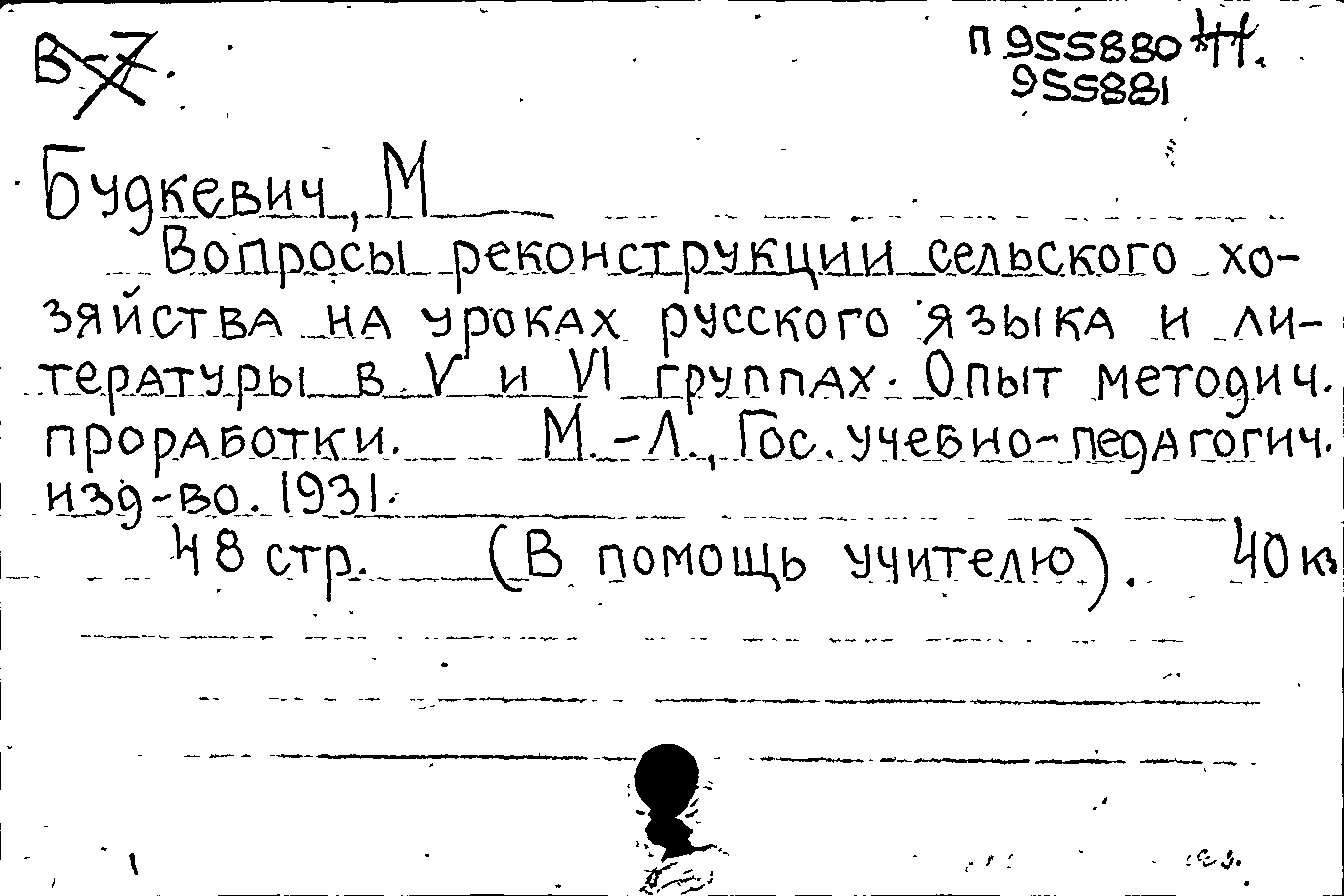 В-7.
П 955880
955881
Будкевич, М
Вопросы реконструкции сельского хо-
зяйства на уроках русского языка и ли-
тературы в V и VI группах. Опыт методич.
проработки. М.-Л., Гос. учебно-педагогич.
изд-во. 1931.
48 стр. (В помощь учителю). 40 к